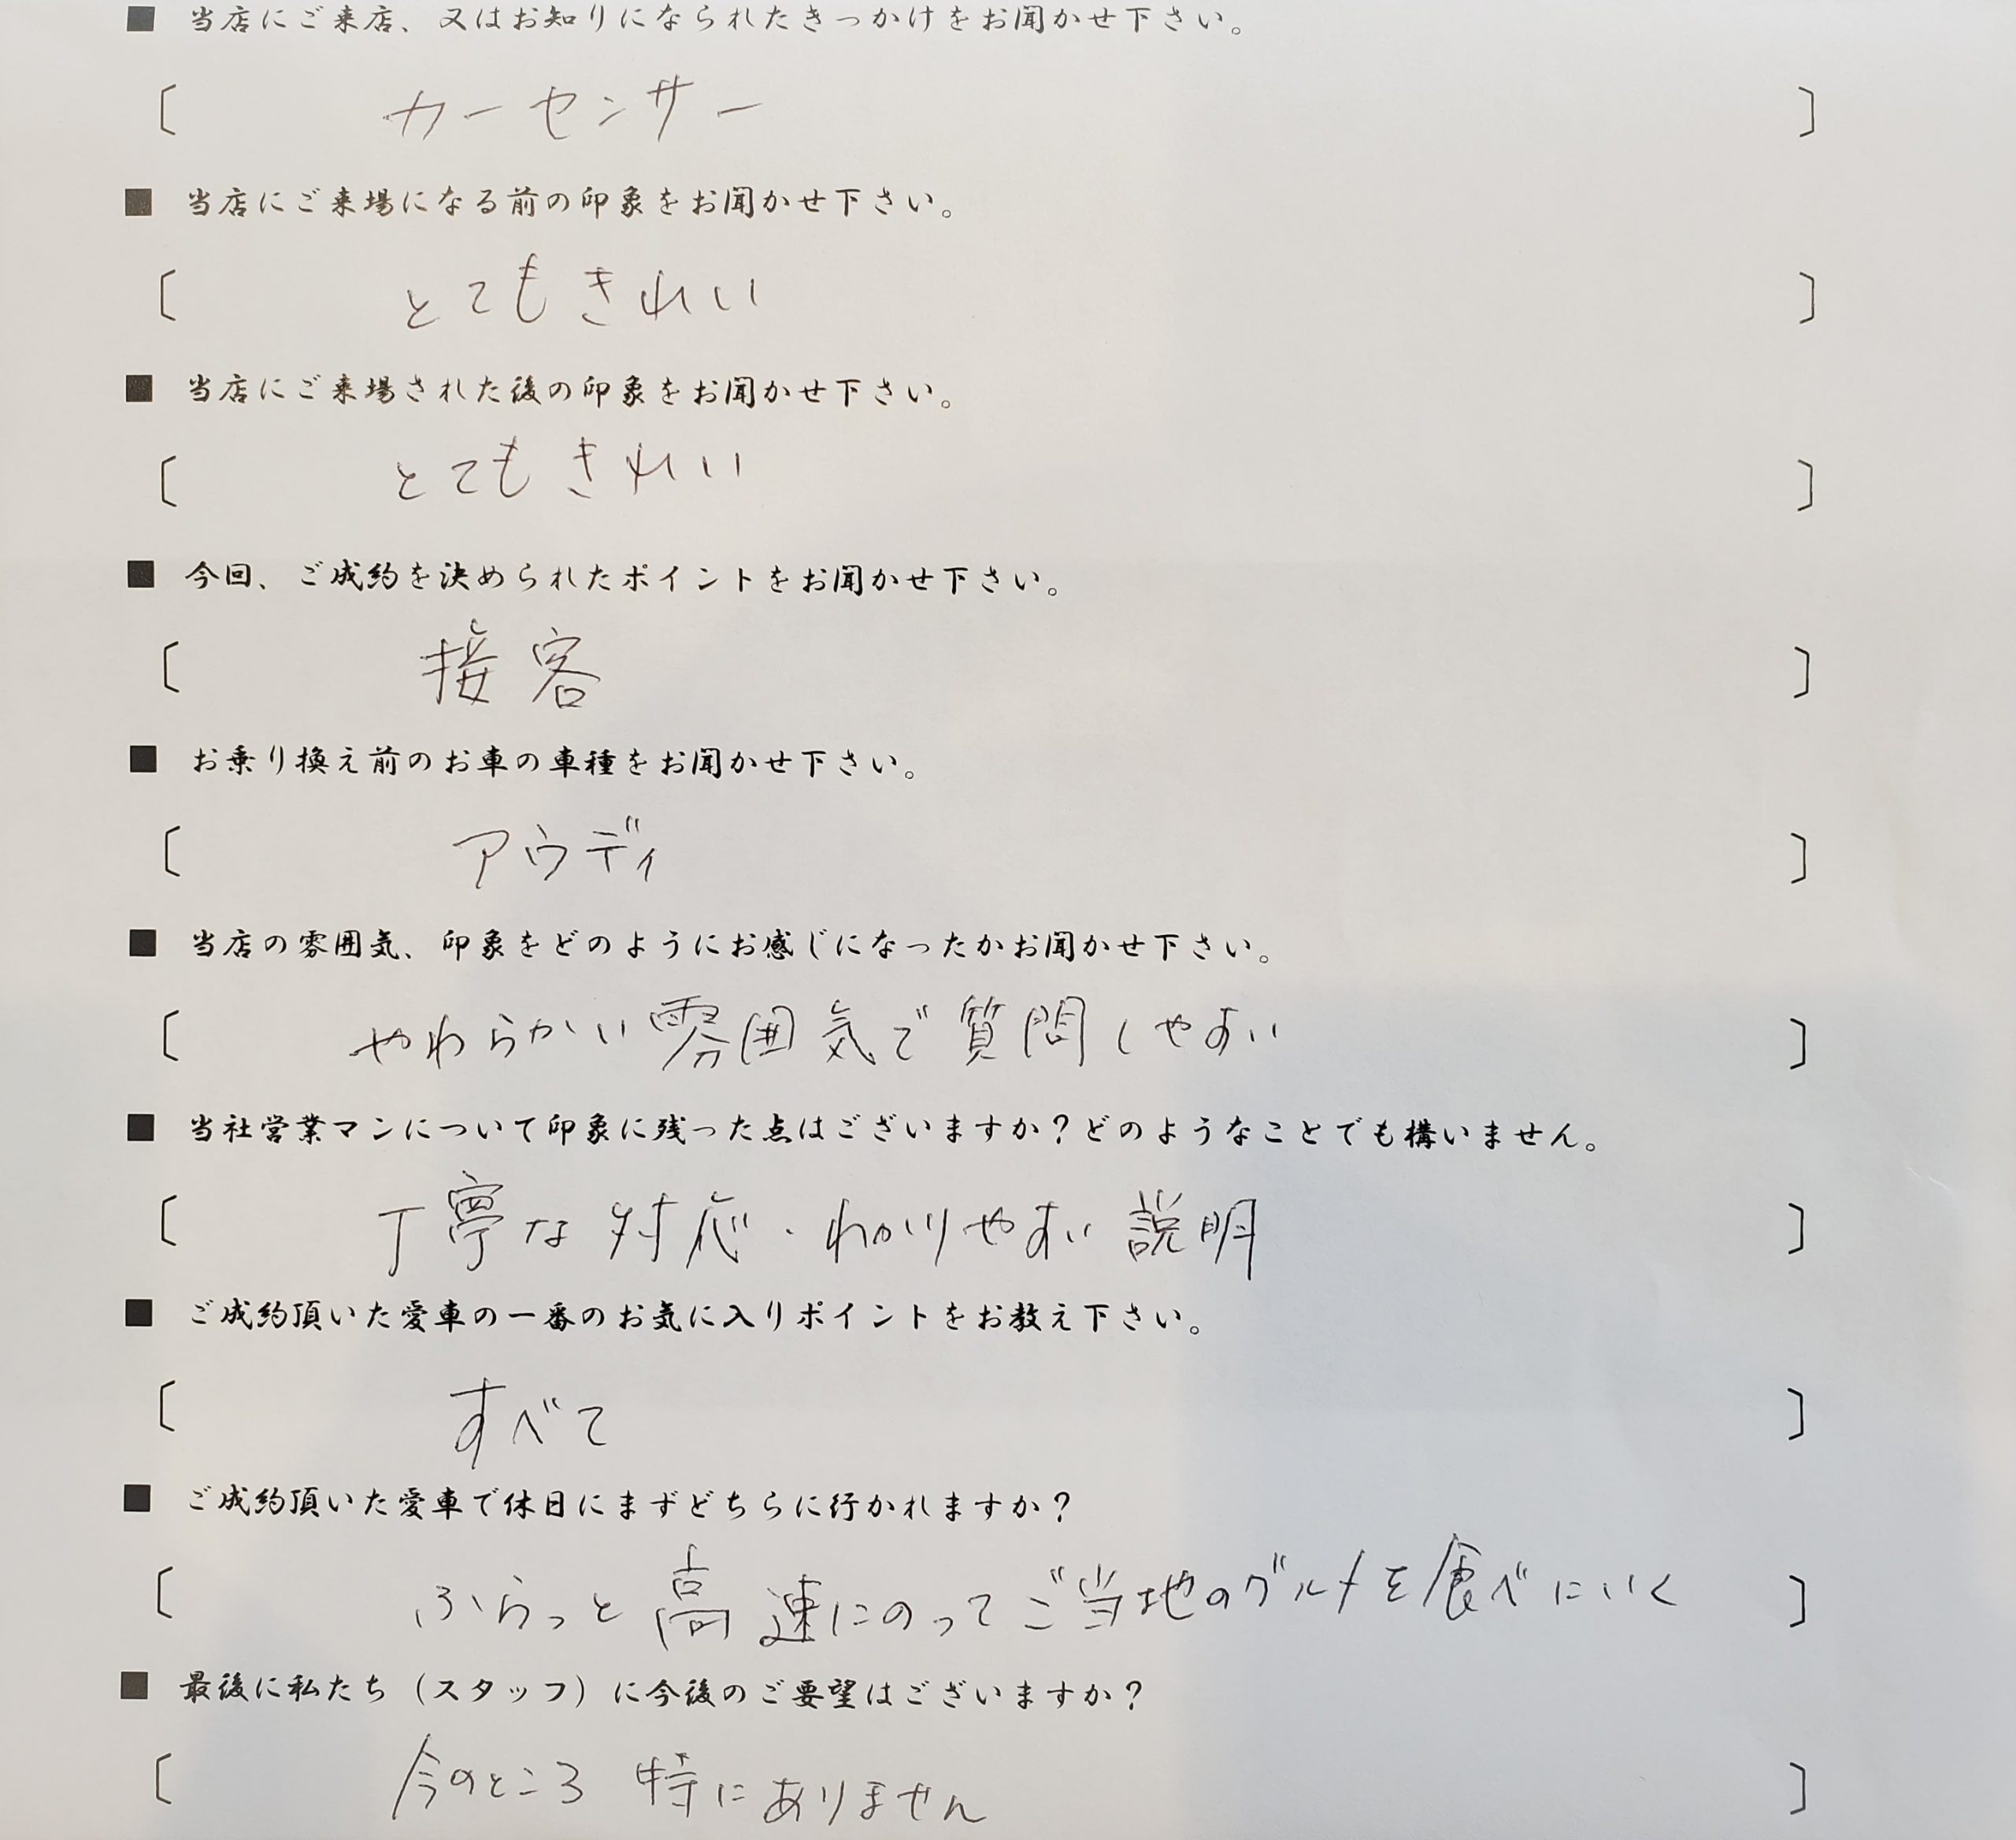 ■ 当店にご来店、又はお知りになられたきっかけをお聞かせ下さい。
〔 カーセンサー 〕
■ 当店にご来場になる前の印象をお聞かせ下さい。
〔 とてもきれい 〕
■ 当店にご来場された後の印象をお聞かせ下さい。
〔 とてもきれい 〕
■ 今回、ご成約を決められたポイントをお聞かせ下さい。
〔 接客 〕
■ お乗り換え前のお車の車種をお聞かせ下さい。
〔 アウディ 〕
■ 当店の雰囲気、印象をどのようにお感じになったかお聞かせ下さい。
〔 やわらかい雰囲気で質問しやすい 〕
■ 当社営業マンについて印象に残った点はございますか?どのようなことでも構いません。
〔 丁寧な対応・わかりやすい説明 〕
■ ご成約頂いた愛車の一番のお気に入りポイントをお教え下さい。
〔 すべて 〕
■ ご成約頂いた愛車で休日にまずどちらに行かれますか?
〔 ふらっと高速にのってご当地のグルメを食べにいく 〕
■ 最後に私たち(スタッフ)に今後のご要望はございますか?
〔 今のところ 特にありません 〕